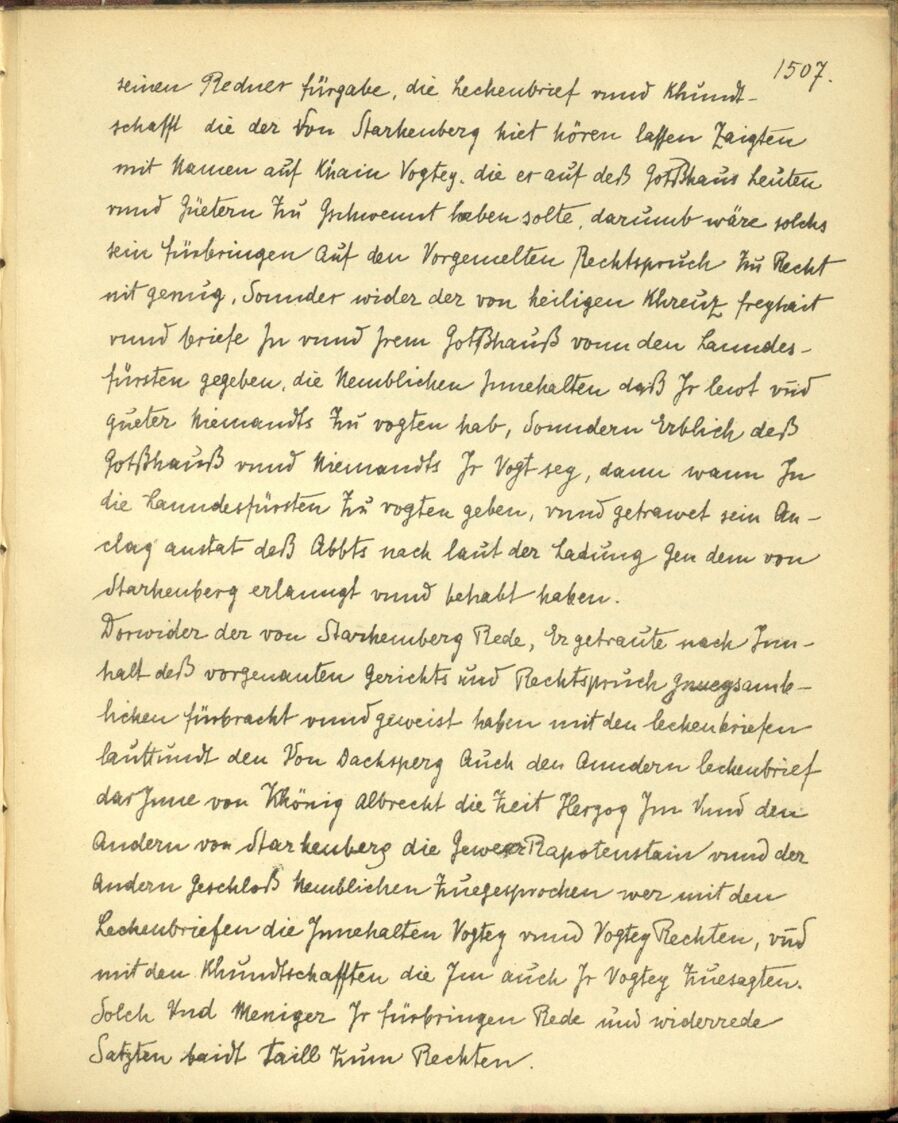 1507.
seinen Redner fürgabe, die Lechenbrief vnnd Khundt-
schafft die der Von Starhenberg hiet hören lassen Zaigten
mit Namen auf Khain Vogtey, die er auf deß Gotßhaus Leuten
vnnd Güetern Zu Gschwennt haben solte, darumb wäre solchs
sein fürbringen Auf den Vorgemelten Rechtspruch Zu Recht
nit genug, Sonnder wider der von heiligen Khreutz freyhait
vnnd briefe In vnnd Irem Gotßhauß vonn den Lanndes-
fürsten gegeben, die Nemblichen Innehalten daß Ir lewt vnd
gueter Niemandts Zu vogten hab, Sonndern Erblich deß
Gotßhauß vnnd Niemandts Ir Vogt sey, dann wann In
die Lanndesfürsten Zu vogten geben, vnnd getrawet sein An-
clag anstat deß Abbts nach laut der Ladung Gen dem von
Starhenberg erlanngt vnnd behabt haben.
Dorwider der von Starhemberg Rede, Er getraute nach Inn-
halt deß vorgenanten Gerichts und Rechtspruch Gnuegsamb-
lichen fürbracht vnnd geweist haben mit den lechenbriefen
lauttundt den Von Dachsperg Auch den Anndern lechenbrief
dar Inne von Khönig Albrecht die Zeit Herzog Im Vnnd den
Andern von Starhenberg die Gewer Rapotenstain vnnd der
Andern Geschloß Nemblichen Zuegesprochen wer mit den
Lechenbriefen die Innehalten Vogtey vnnd Vogtey Rechten, vnd
mit den Khundtschafften die Im auch Ir Vogtey Zuesagten.
Solch Vnd Meniger Ir fürbringen Rede und widerrede
Satzten baidt Taill Zum Rechten.